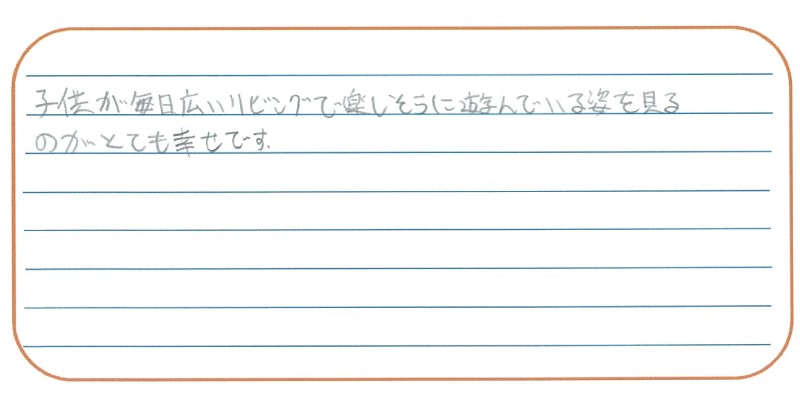 子供が毎日広いリビングで楽しそうに遊んでいる姿を見る
のがとても幸せです.